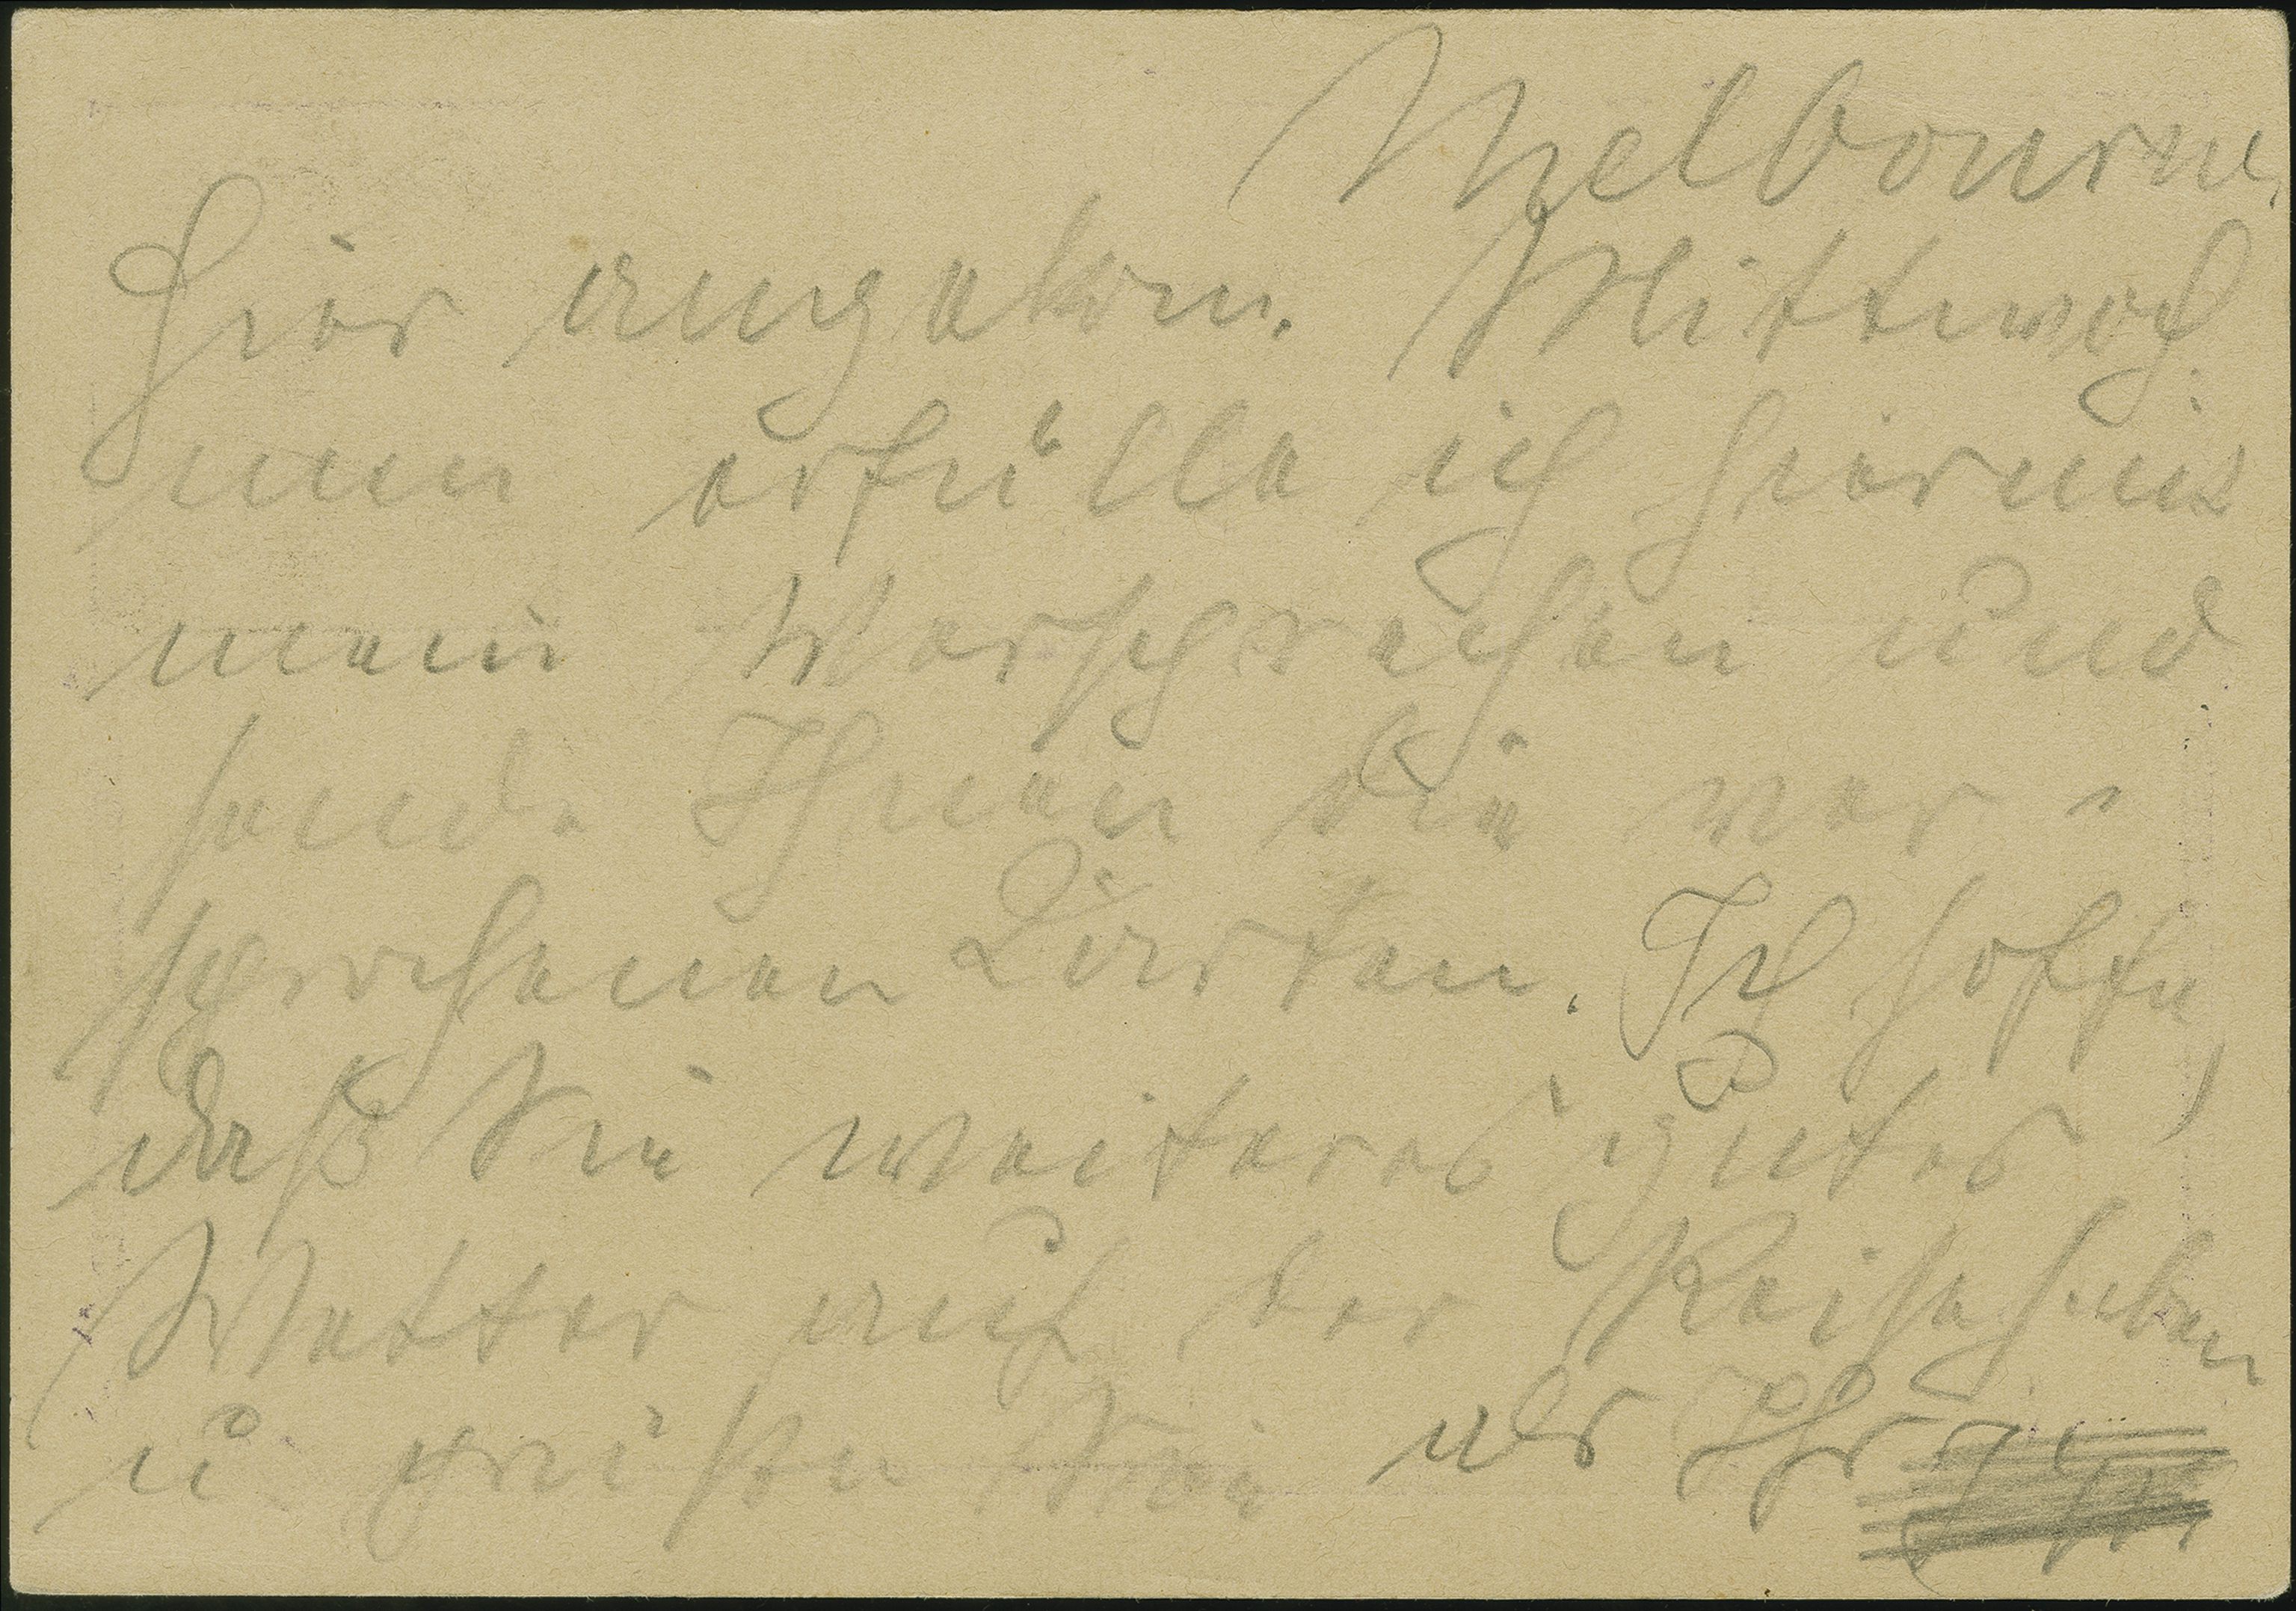 Melbourne,
Hier angekom. Mittwoch
nun erfülle ich hiermit
mein Versprechen und
sende Ihnen die ver-
sprochenen Karten. Ich hoffe,
daß Sie weiteres gutes
Wetter auf der Reise haben
u. grüße Sie als Ihr